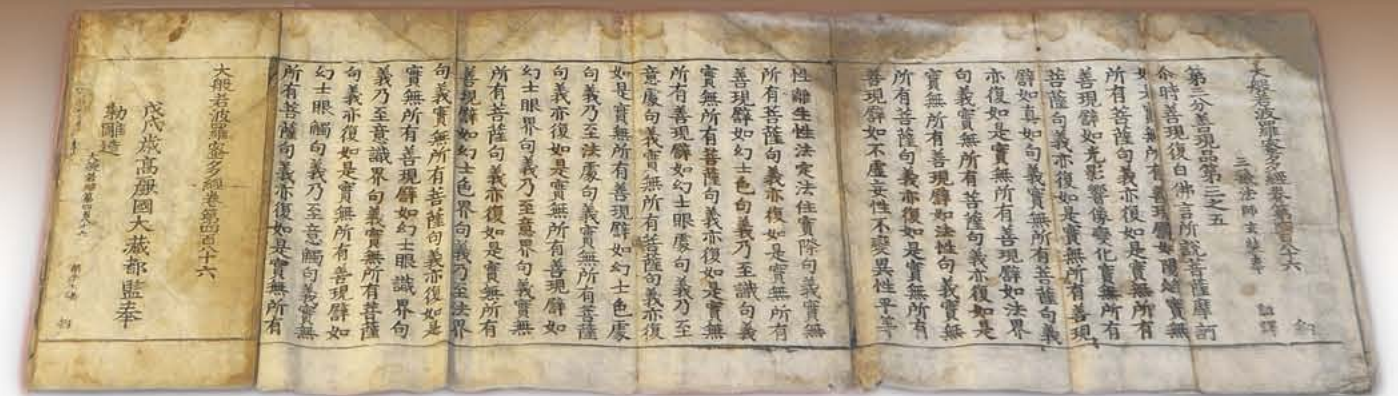 大般若波羅蜜多經卷第四百八十六
三藏法師玄奘奉 詔譯
第三分善現品第三之五
尒時善現復白佛言所說菩薩摩訶
如是實無所有善現譬如陽焰實無
所有菩薩句義亦復如是實無所有
善現譬如光影響像變化實無所有
菩薩句義亦復如是實無所有善現
譬如真如句義實無所有菩薩句義
亦復如是實無所有善現譬如法界
句義實無所有菩薩句義亦復如是
實無所有善現譬如法性句義實無
所有菩薩句義亦復如是實無所有
善現譬如不虛妄性不變異性平等
性離生性法定法住實際句義實無
所有菩薩句義亦復如是實無所有
善現譬如幻士色句義乃至識句義
實無所有菩薩句義亦復如是實無
所有善現譬如幻士眼處句義乃至
意處句義實無所有菩薩句義亦復
如是實無所有善現譬如幻士色處
句義乃至法處句義實無所有菩薩
句義亦復如是實無所有善現譬如
幻士眼界句義乃至意界句義實無
所有菩薩句義亦復如是實無所有
善現譬如幻士色界句義乃至法界
句義實無所有菩薩句義亦復如是
實無所有善現譬如幻士眼識界句
義乃至意識界句義實無所有菩薩
句義亦復如是實無所有善現譬如
幻士眼觸句義乃至意觸句義實無
所有菩薩句義亦復如是實無所有
大般若波羅蜜多經卷第四百八十六
戊戌歲高麗國大藏都監奉
勅雕造